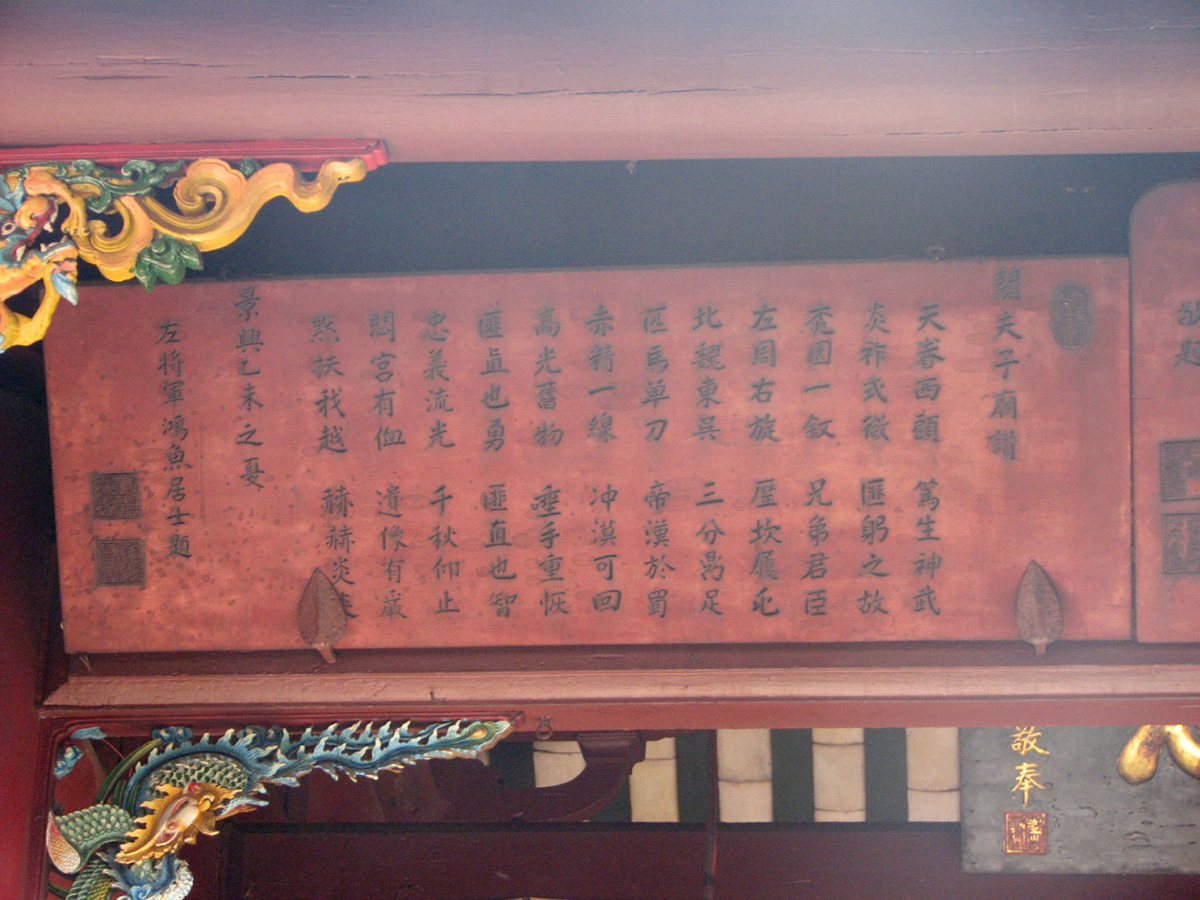 敬題
關夫子廟讃
天眷西顧 篤生神武
炎祚式微 匪躬之故
桃園一叙 兄弟君臣
左周右旋 歷坎履屯
北魏東吳 三分鼎足
匹馬单刀 帝漢於蜀
赤精一線 冲漠可回
高光舊物 唾手重恢
匪直也勇 匪直也智
忠義流光 千秋仰止
閟宮有侐 遺像有嚴
默扶我越 赫赫炎
景興乙未之夏
左將軍鴻魚居士題
敬奉